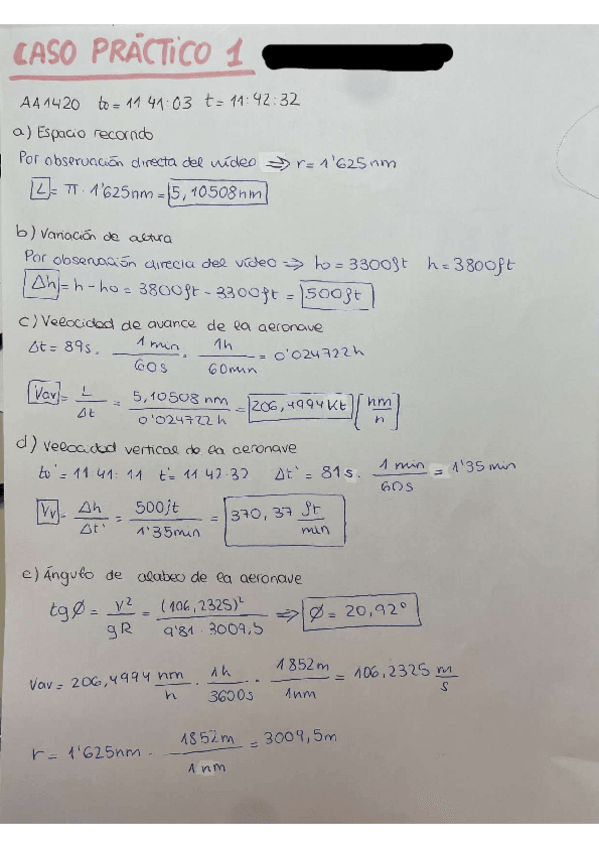 CASO PRÁCTICO 1
AA1420 to = 11 41:03 t = 11:42:32
a) Espacio recorrido
Por observación directa del vídeo => r = 1'625nm
L = π · 1'625nm = 5,10508nm
b) Variación de altura
Por observación directa del vídeo => ho = 3300ft h = 3800ft
Δh = h - ho = 3800ft - 3300ft = 500ft
c) Velocidad de avance de la aeronave
Δt = 89s · 1 min / 60s · 1h / 60min = 0'024722h
Vav = L / Δt = 5,10508 nm / 0'024722 h = 206,4994 Kt [nm / h]
d) Velocidad vertical de la aeronave
to' = 11 41: 11 t' = 11 42:32 Δt' = 81 s · 1 min / 60s = 1'35 min
Vv = Δh / Δt' = 500ft / 1'35min = 370,37 ft / min
e) Ángulo de alabeo de la aeronave
tg Ø = V² / gR = (106,2325)² / 9'81 · 3009,5 => Ø = 20,92°
Vav = 206,4994 nm / h · 1h / 3600s · 1852m / 1nm = 106,2325 m / s
r = 1'625nm · 1852m / 1 nm = 3009,5m